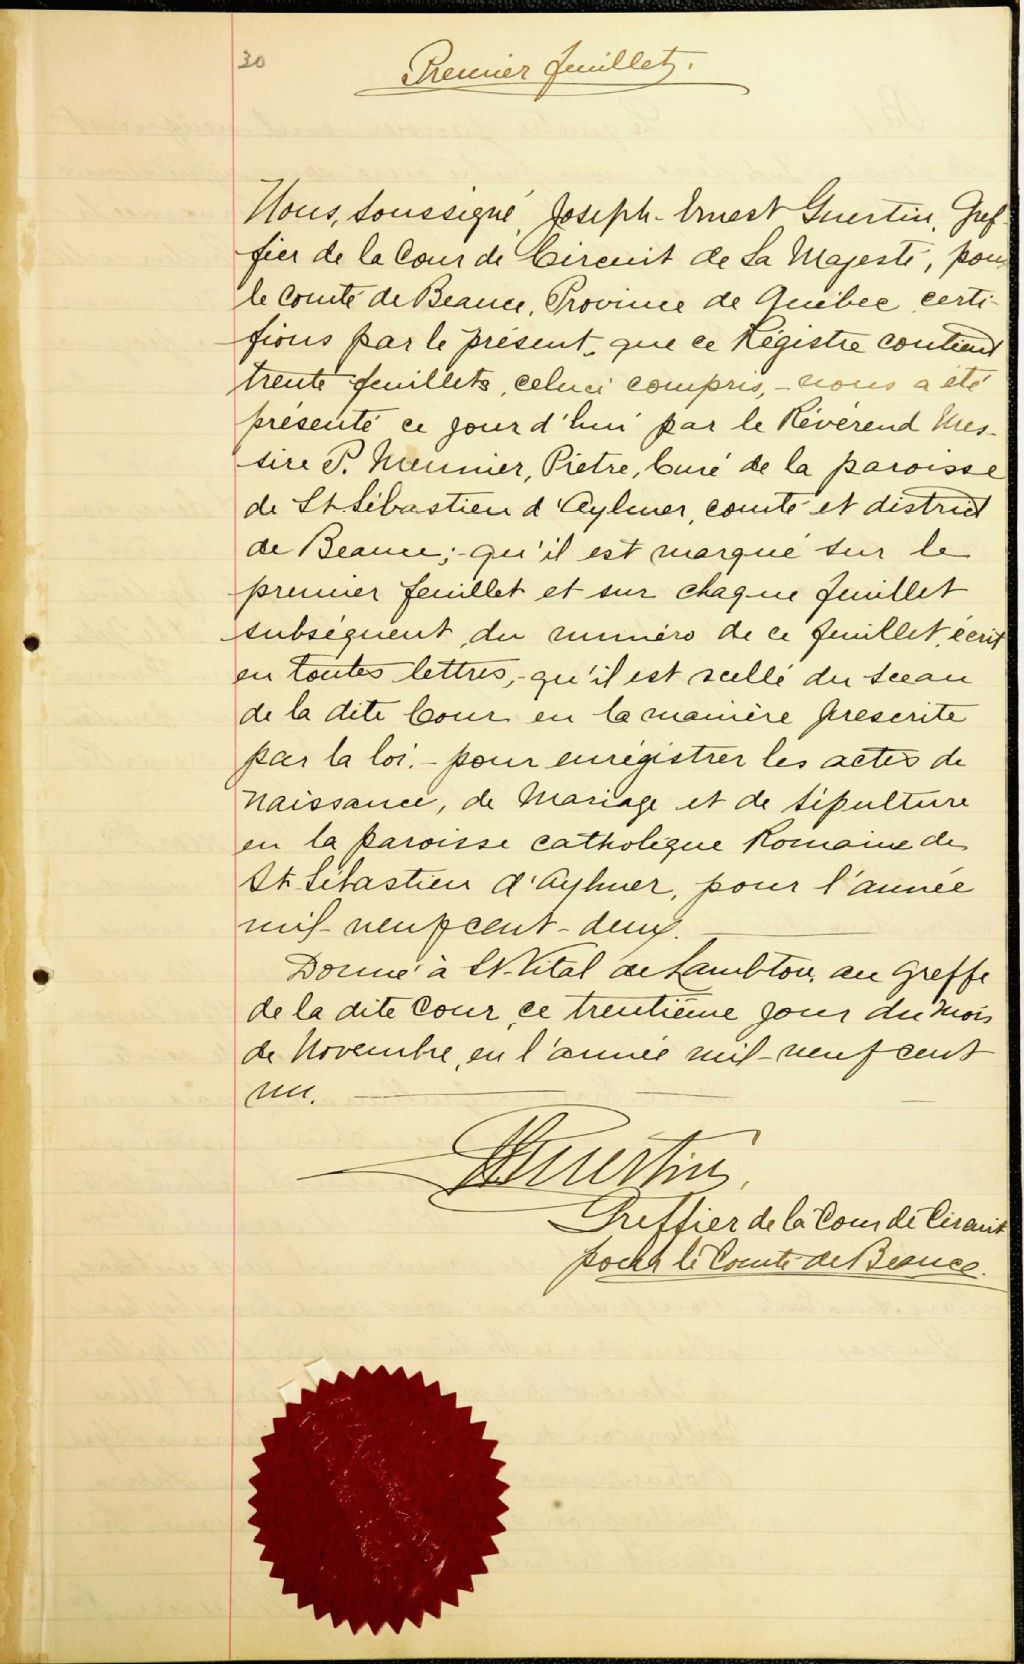 30
Premier feuillet.
Nous, soussigné, Joseph-Ernest Guertin, Gref-
fier de la Cour de Circuit de Sa Majesté, pour
le comté de Beauce, Province de Québec certi-
fions par le présent, que ce Régistre contient
trente feuillets, celui ci compris, - nous a été
présenté ce jour d'hui par le Révérend Mes-
sire P. Meunier, Prêtre, Curé de la paroisse
de St Sébastien d'Aylmer, comté et district
de Beauce; - qu'il est marqué sur le
premier feuillet et sur chaque feuillet
subséquent, du numéro de ce feuillet, écrit
en toutes lettres, - qu'il est scellé du sceau
de la dite Cour en la manière prescrite
par la loi. - pour enrégistrer les actes de
Naissance, de Mariage et de Sépulture
en la paroisse catholique Romaine de
St Sébastien d'Aylmer, pour l'année
mil-neuf cent-deux.
Donné à St-Vital de Lambton, au Greffe
de la dite Cour, ce trentième jour du mois
de Novembre, en l'année mil-neuf cent
un.
Guertin,
Greffier de la Cour de Circuit
pour le Comté de Beauce.